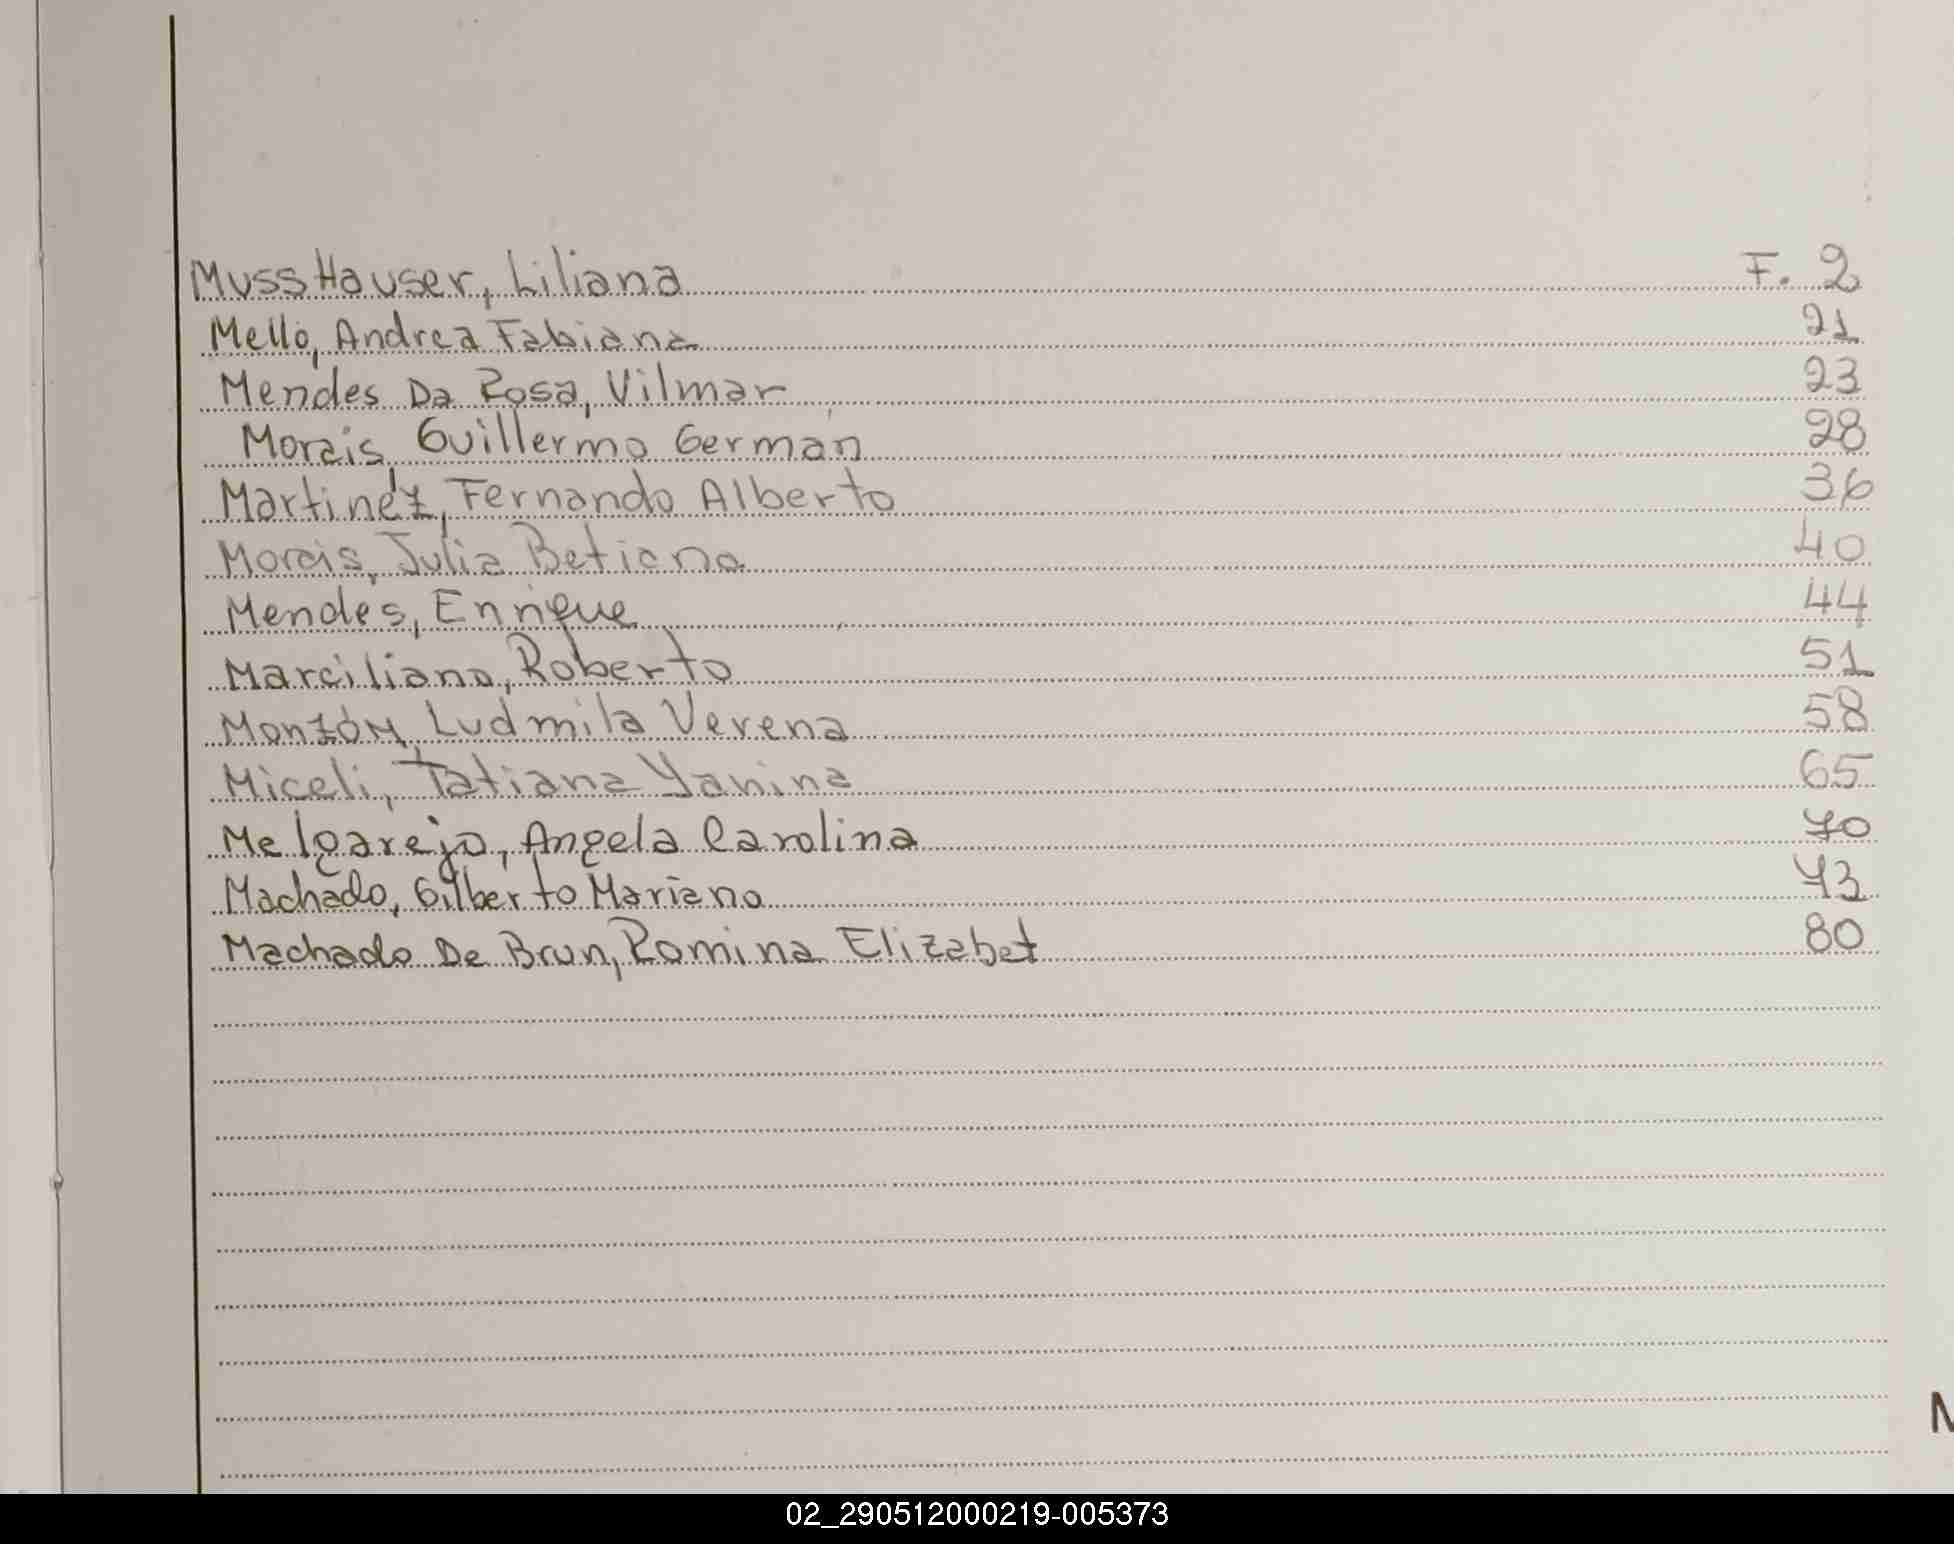 MussHauser, Liliana F. 2
Mello, Andrea Fabiana 21
Mendes Da Rosa, Vilmar 23
Morais, Guillermo German 28
Martinez, Fernando Alberto 36
Morais, Julia Betiana 40
Mendes, Enrique 44
Marciliano, Roberto 51
Monzón, Ludmila Verena 58
Miceli, Tatiana Yanina 65
Melgarejo, Angela Carolina 70
Machado, Gilberto Mariano 73
Machado De Brun, Romina Elizabet 80
02_290512000219-005373